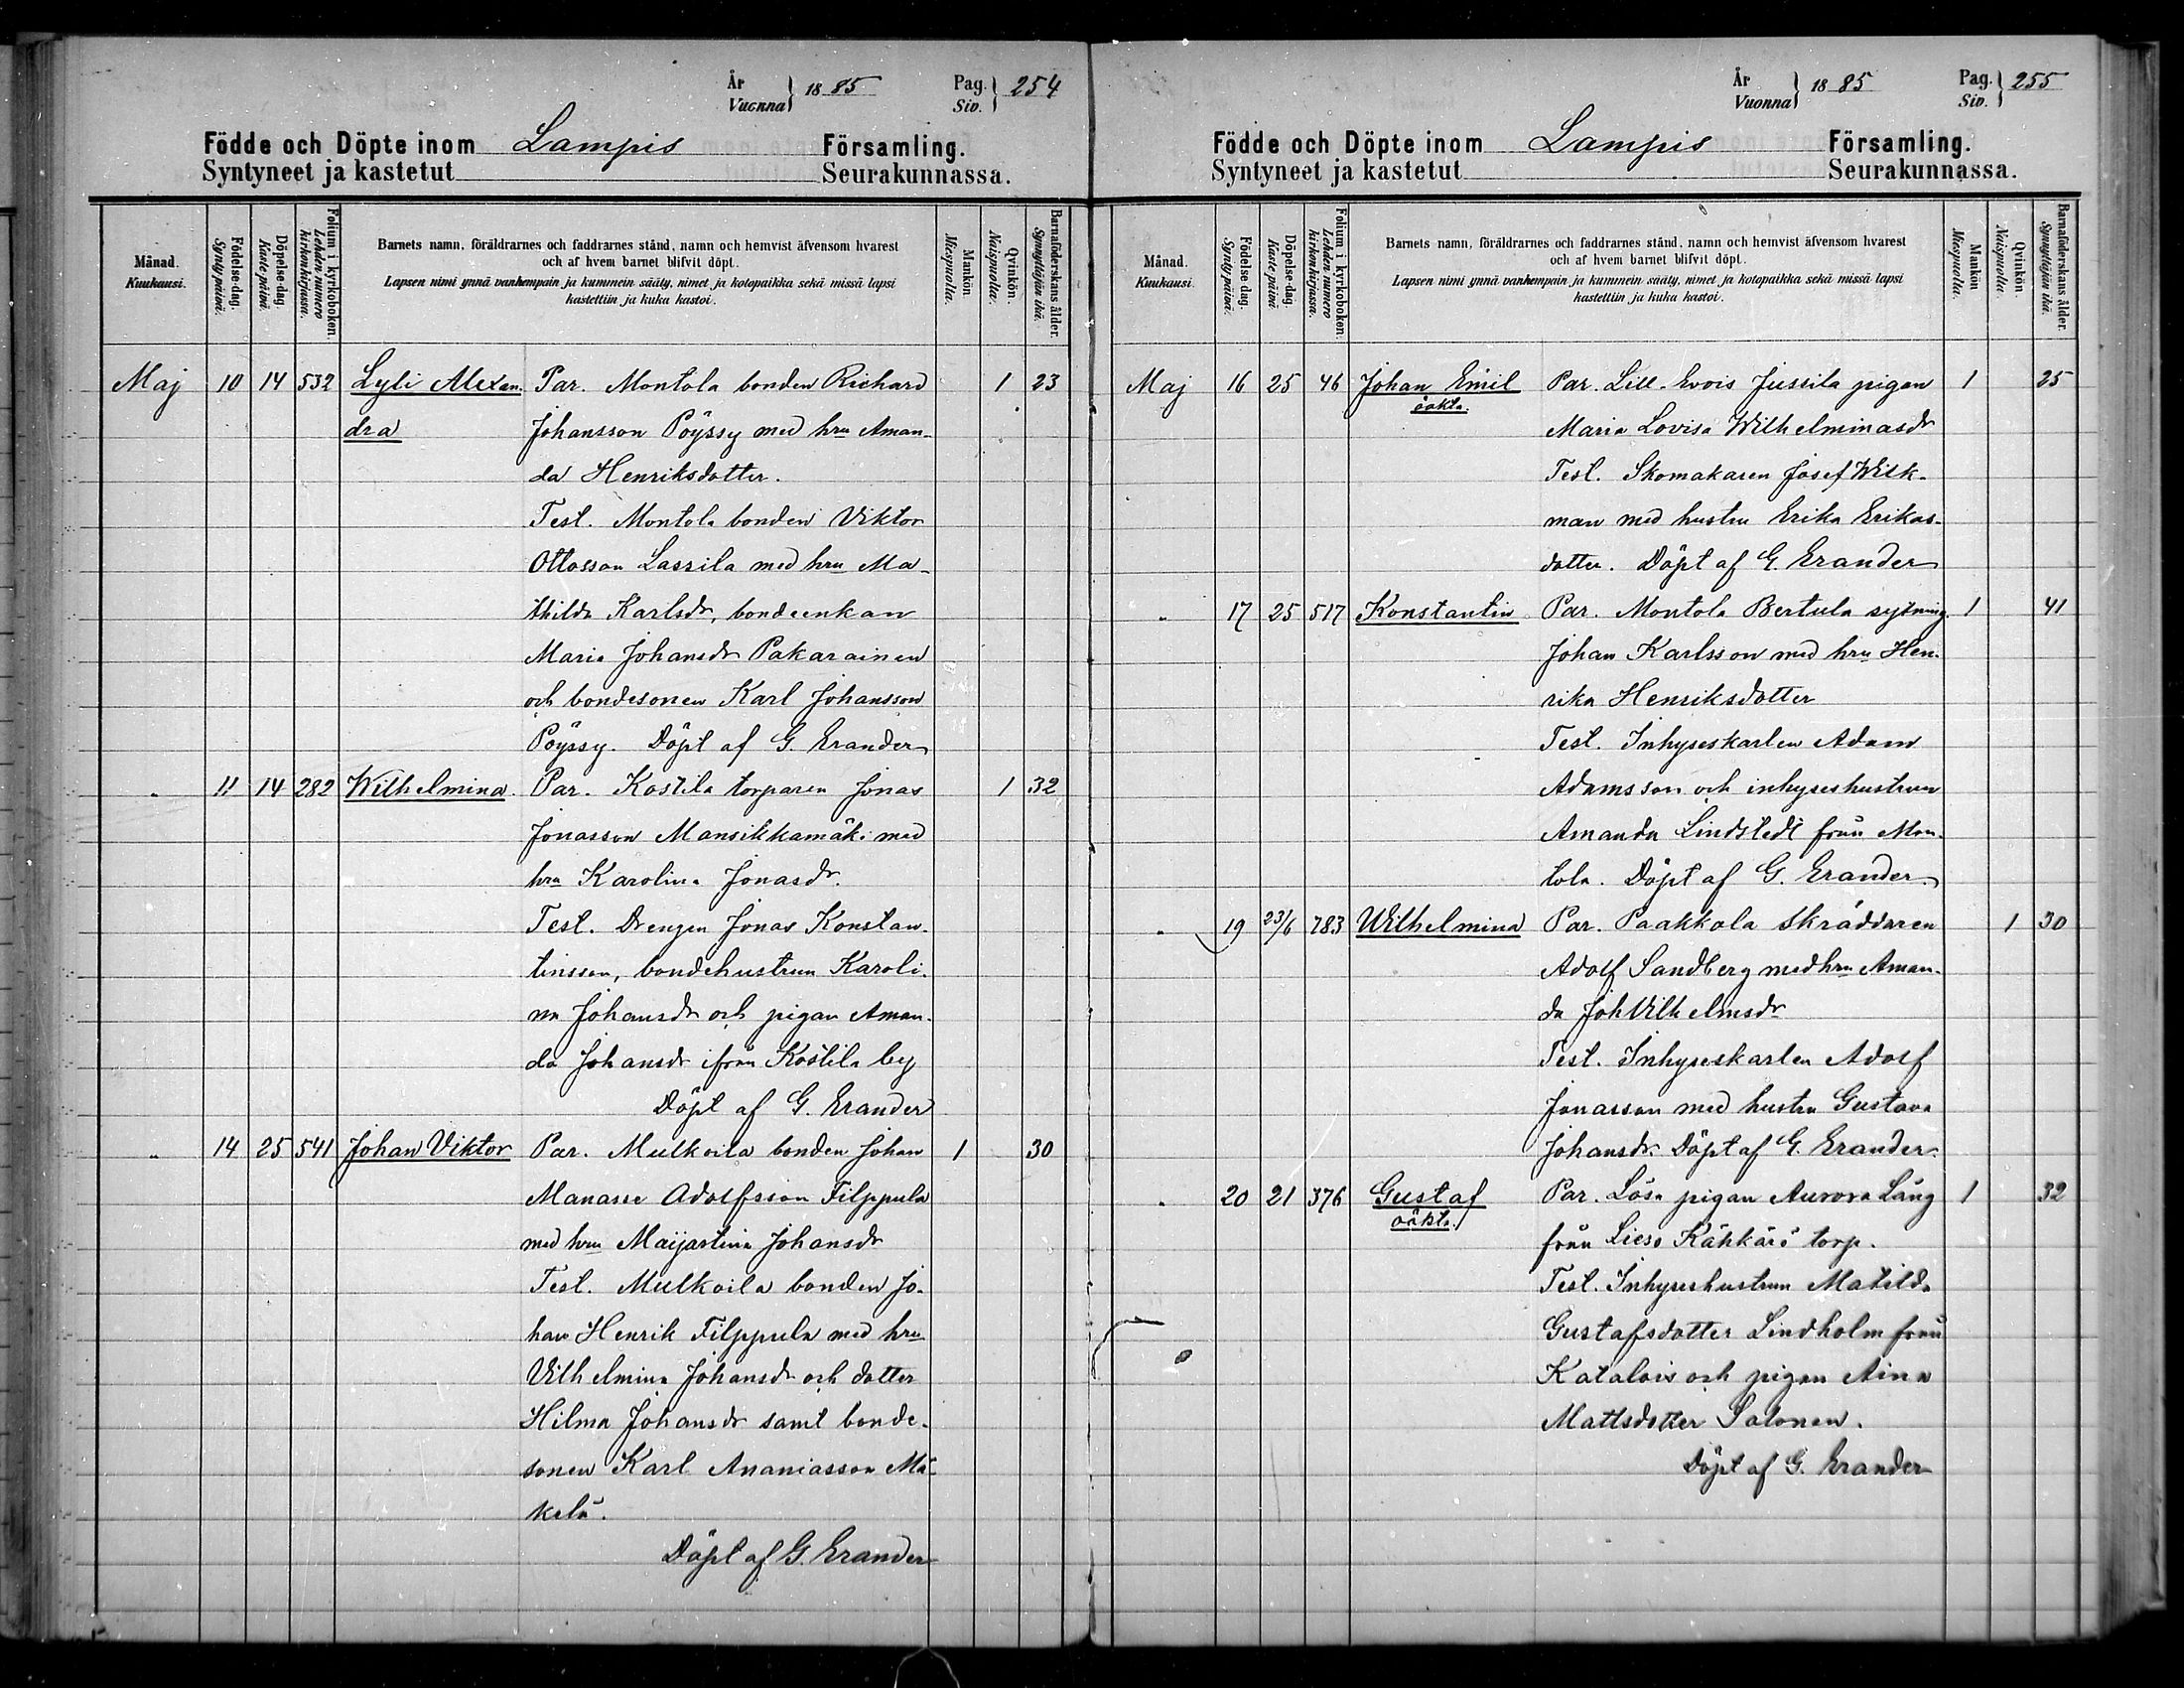 År
Vuonna } 1885
Pag.
Siv. } 254
Födde och Döpte inom Lampis Församling.
Syntyneet ja kastetut Seurakunnassa.
Månad.
Kuukausi.
Födelse-dag.
Synty päivä.
Döpelse-dag.
Kaste päivä.
Folium i kyrkoboken.
Lehden numero
kirkonkirjassa.
Barnets namn, föräldrarnes och faddrarnes stånd, namn och hemvist äfvensom hvarest
och af hvem barnet blifvit döpt.
Lapsen nimi ynnä vanhempain ja kummein sääty, nimet ja kotopaikka sekä missä lapsi
kastettiin ja kuka kastoi.
Mankön.
Miespuolia.
Qvinkön.
Naispuolia.
Barnaföderskans ålder.
Synnyttäjän ikä.
Maj 10 14 532 Lyli Alexan- Par. Montola bonden Richard 1 23
dra Johansson Pöyssy med hru Aman-
da Henriksdotter.
Test. Montola bonden Viktor
Ottosson Lassila med hru Ma-
thilda Karlsdr, bondeenkan
Maria Johansdr Pakarainen
och bondesonen Karl Johansson
Pöyssy. Döpt af G. Erander
" 11 14 282 Wilhelmina. Par. Kostila torparen Jonas 1 32
Jonasson Mansikkamäki med
hru Karolina Jonasdr.
Test. Drengen Jonas Konstan-
tinsson, bondehustrun Karoli-
na Johansdr och pigan Aman-
da Johansdr ifrån Kostila by
Döpt af G. Erander
" 14 25 541 Johan Viktor Par. Mulkoila bonden Johan 1 30
Manasse Adolfsson Filppula
med hru Maijastina Johansdr
Test. Mulkoila bonden Jo-
han Henrik Filppula med hru
Vilhelmina Johansdr och dotter
Hilma Johansdr samt bonde-
sonen Karl Ananiasson Mä-
kelä.
Döpt af G. Erander
År
Vuonna } 1885
Pag.
Siv. } 255
Födde och Döpte inom Lampis Församling.
Syntyneet ja kastetut Seurakunnassa.
Månad.
Kuukausi.
Födelse-dag.
Synty päivä.
Döpelse-dag.
Kaste päivä.
Folium i kyrkoboken.
Lehden numero
kirkonkirjassa.
Barnets namn, föräldrarnes och faddrarnes stånd, namn och hemvist äfvensom hvarest
och af hvem barnet blifvit döpt.
Lapsen nimi ynnä vanhempain ja kummein sääty, nimet ja kotopaikka sekä missä lapsi
kastettiin ja kuka kastoi.
Mankön
Miespuolia.
Qvinkön.
Naispuolia.
Barnaföderskans ålder.
Synnyttäjän ikä.
Maj 16 25 46 Johan Emil Par. Lill-Evois Jussila pigan 1 25
oäkta. Maria Lovisa Wilhelminasdr
Test. Skomakaren Josef Wilk-
man med hustru Erika Erikas-
dotter. Döpt af G. Erander
" 17 25 517 Konstantin Par. Montola Bertula sytning. 1 41
Johan Karlsson med hru Hen-
rika Henriksdotter
Test. Inhyseskarlen Adam
Adamsson och inhyseshustrun
Amanda Lindstedt från Mon-
tola. Döpt af G. Erander.
" 19 23/6 783 Wilhelmina Par. Paakkola Skräddaren 1 30
Adolf Sandberg med hru Aman-
da Joh Vilhelmsdr
Test. Inhyseskarlen Adolf
Jonasson med hustru Gustava
Johansdr. Döpt af G. Erander.
" 20 21 376 Gustaf Par. Lösa pigan Aurora Lång 1 32
oäkta. från Lieso Kähkärö torp.
Test. Inhyseshustrun Matilda
Gustafsdotter Lindholm från
Katalois och pigan Aina
Mattsdotter Salonen.
Döpt af G. Erander